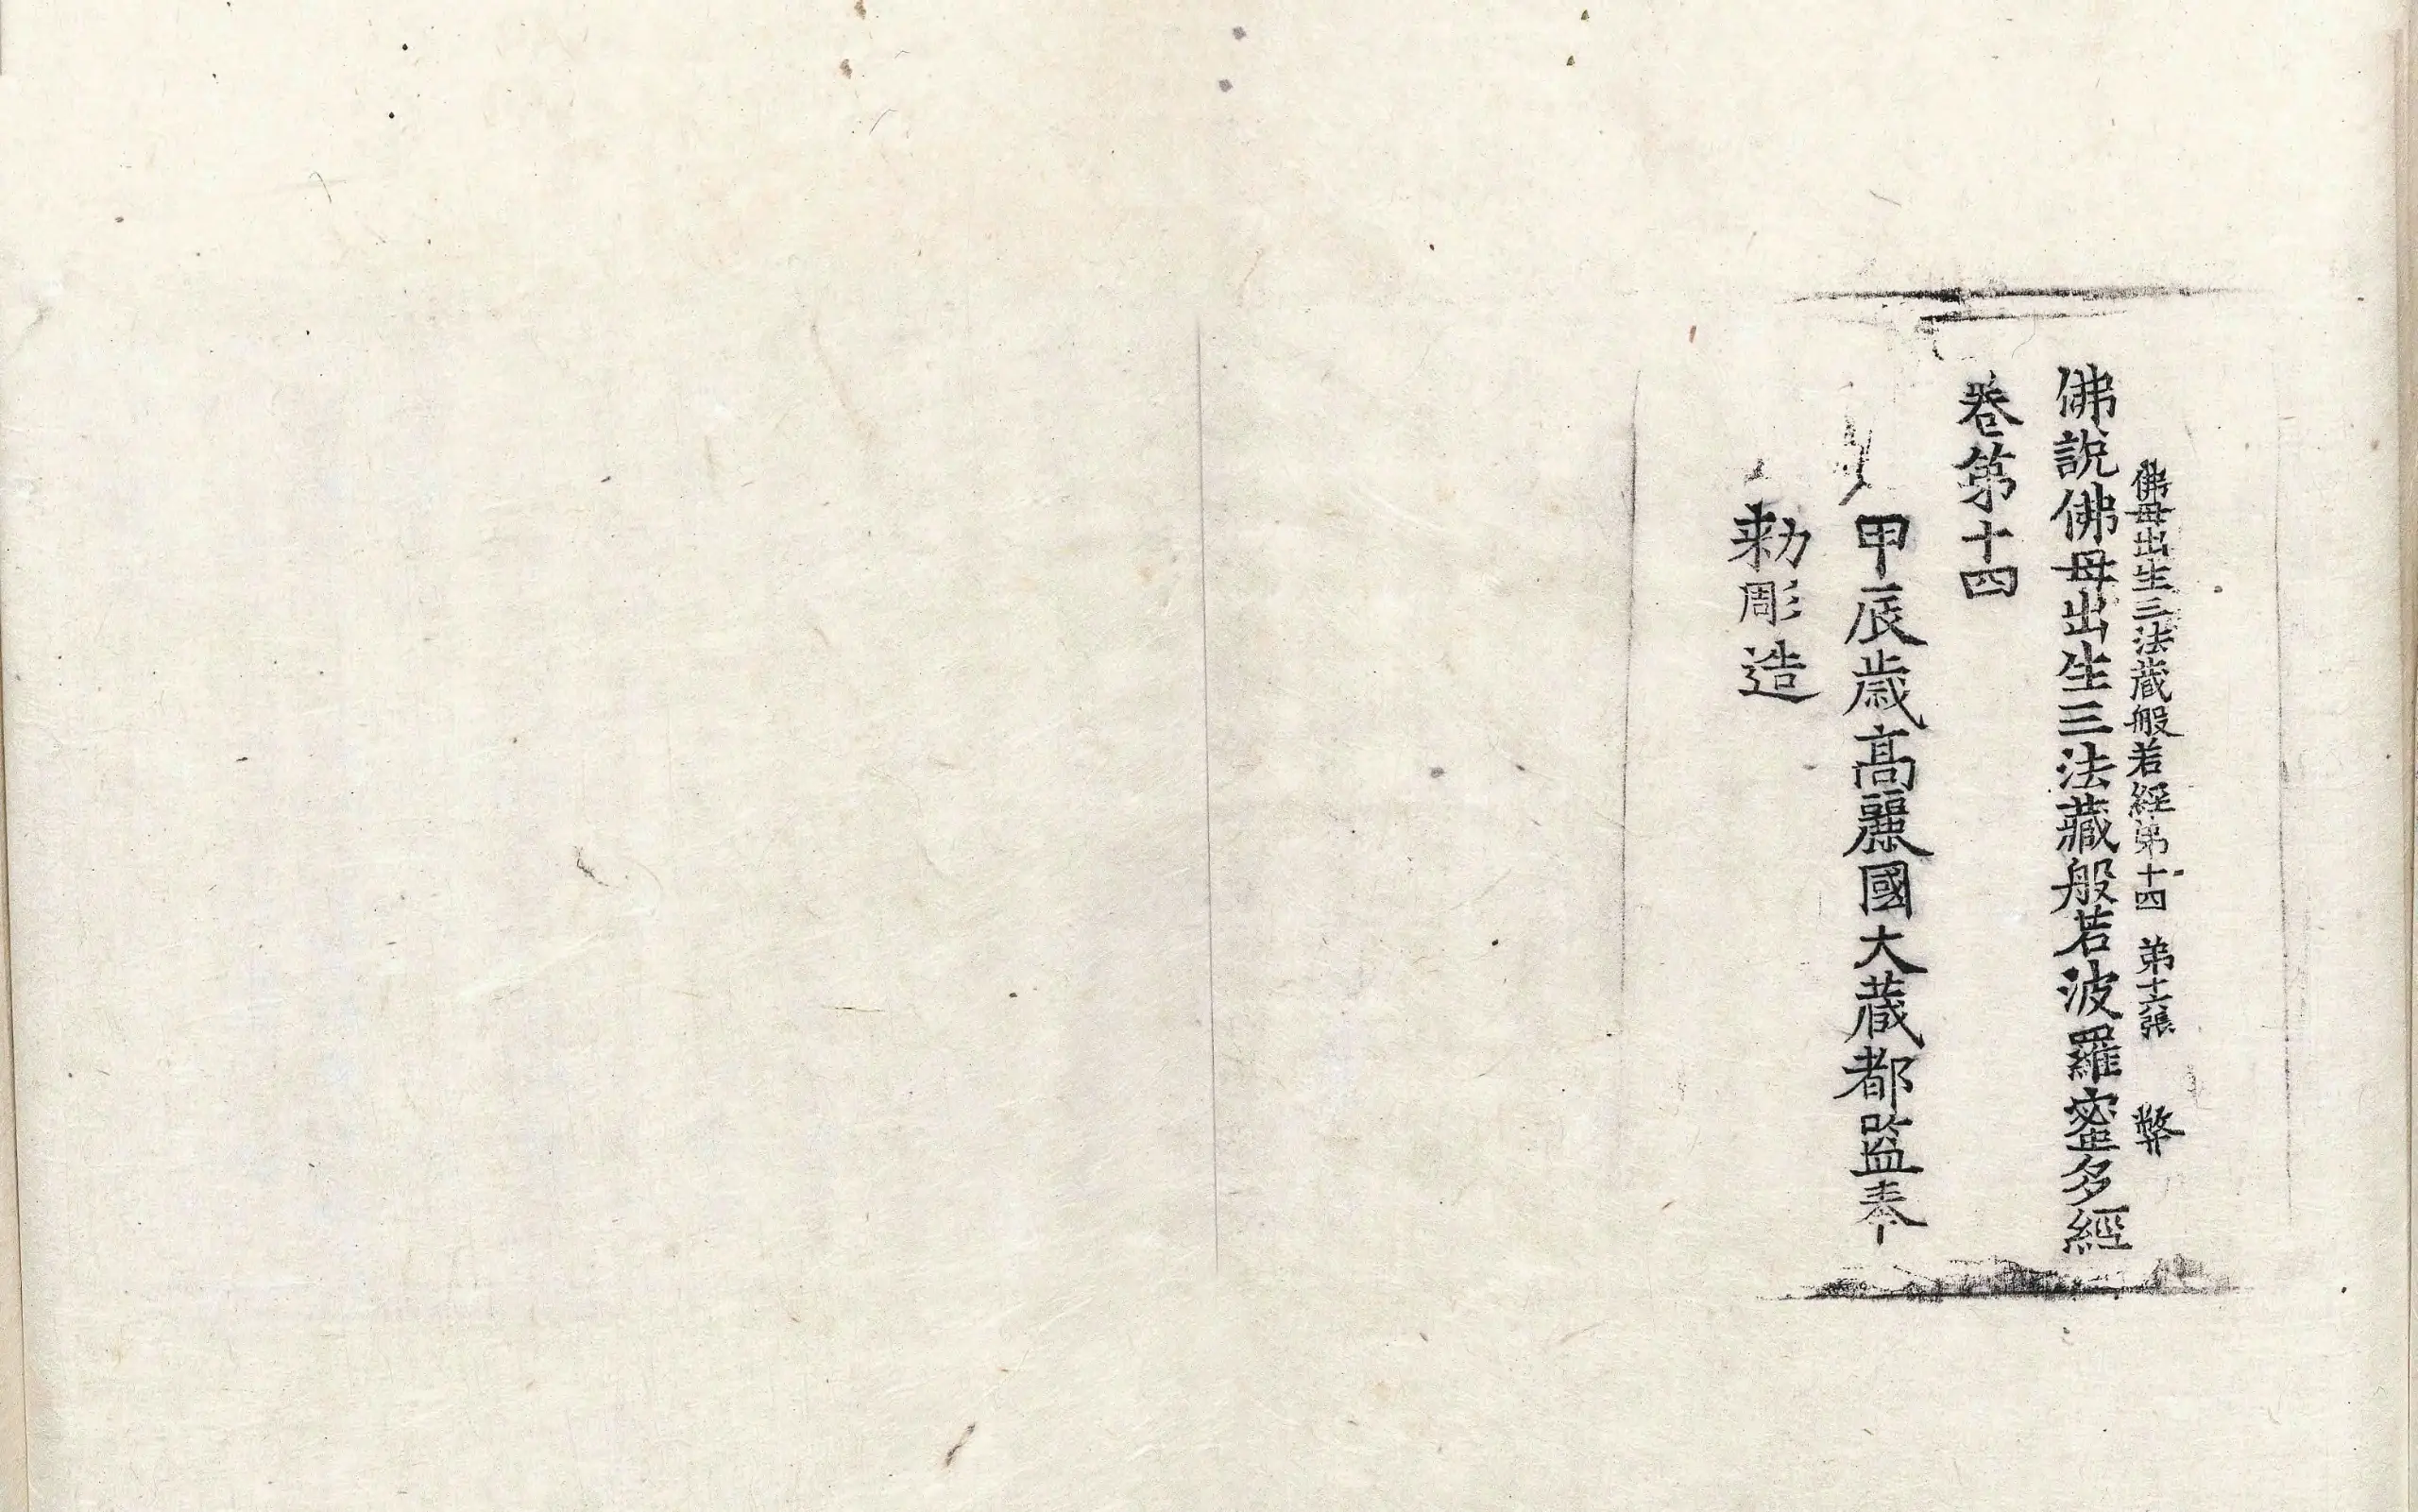 佛母出生三法藏般若經第十四 第十六張 弊
佛說佛母出生三法藏般若波羅蜜多經
卷第十四
甲辰歲高麗國大藏都監奉
勅彫造